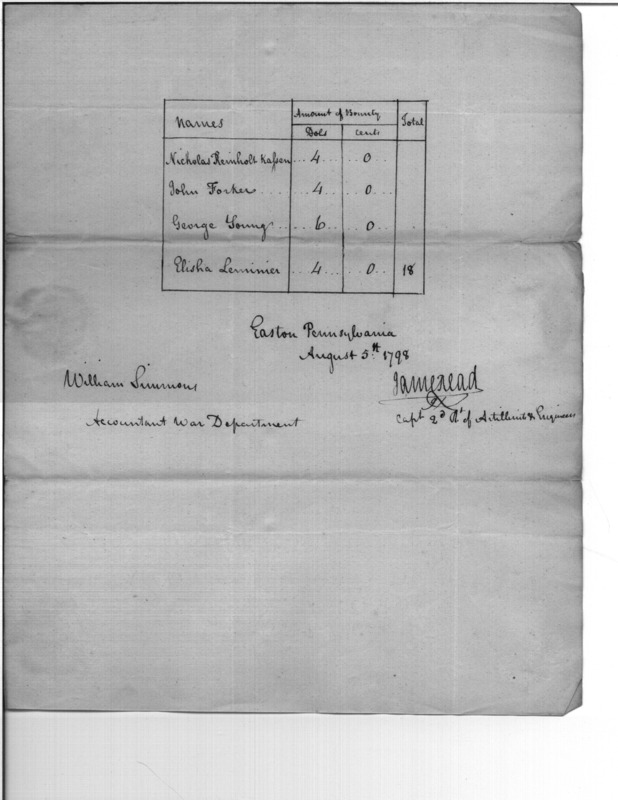 Names Amount of Bounty Total
Dols Cents
Nicholas Reinholt Kassen ... 4 ... 0 ...
John Forker .... 4 ... 0 ...
George Young ... 6 ... 0 ...
Elisha Leminier 4 ... 0 ... 18
Easton Pennsylvania
August 5.th 1798
William Simmons
Accountant War Department
Capt 2d Rt of Artillerists & Engineers